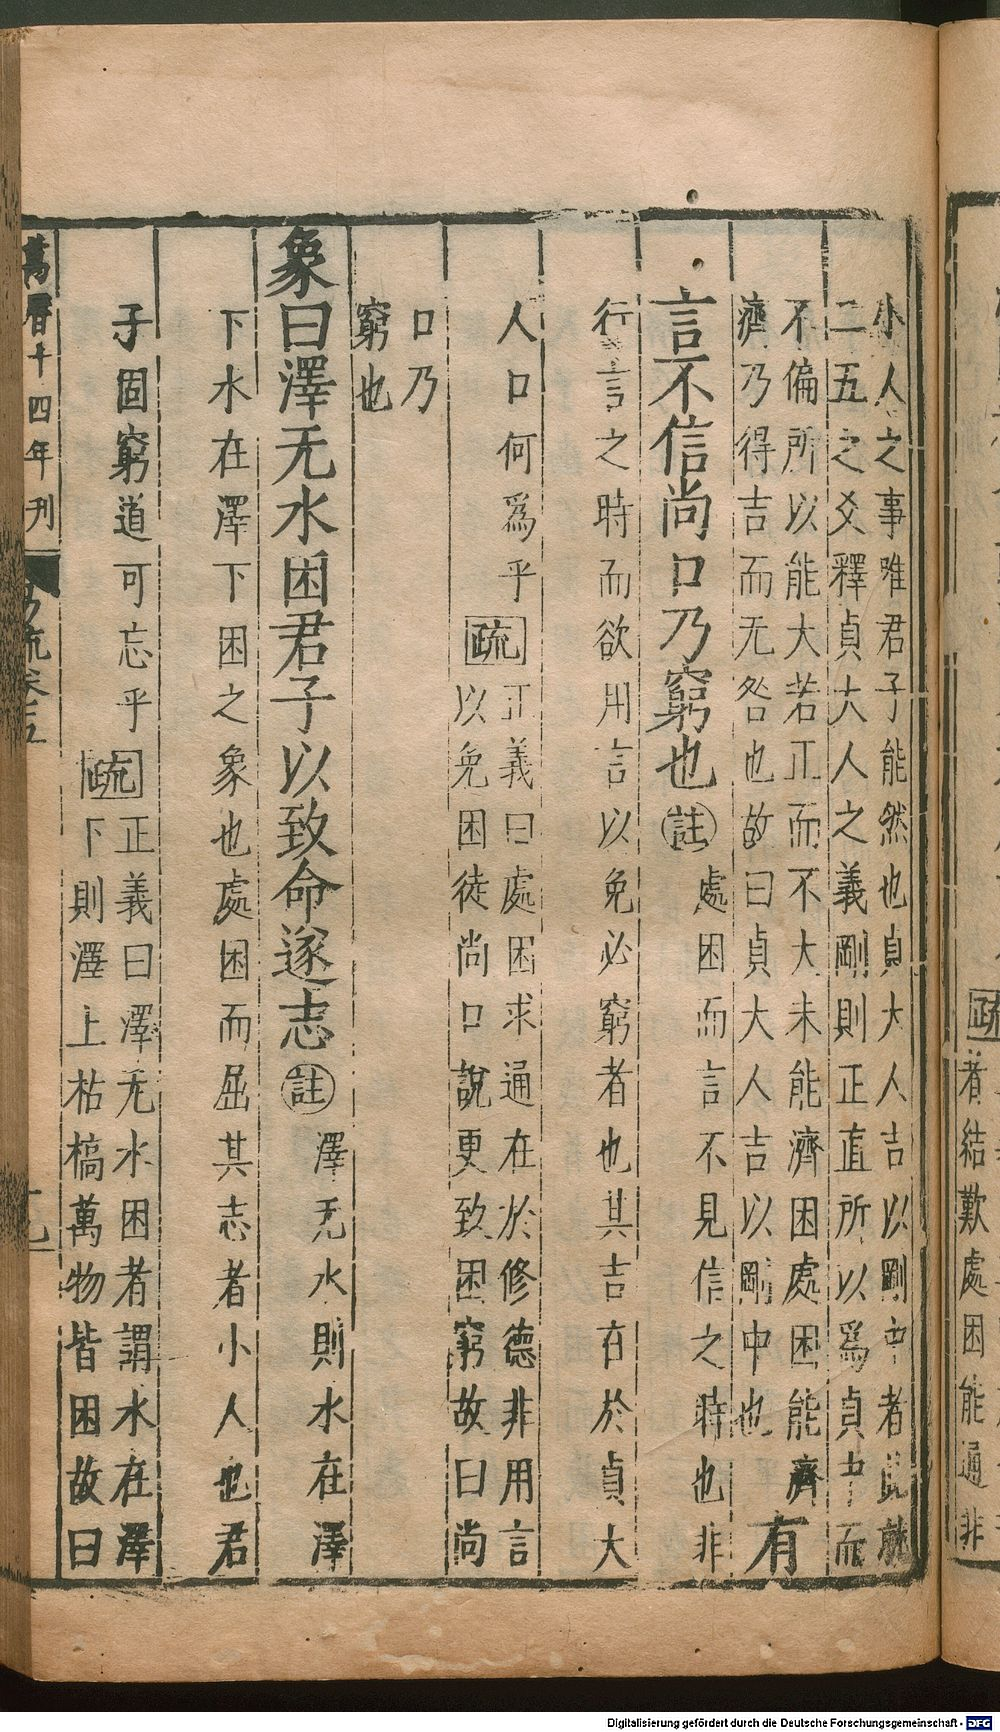 小人之事唯君子能然也貞大人吉以剛中者此就
二五之爻釋貞大人之義剛則正直所以為貞中而
不偏所以能大若正而不大未能濟困處困能濟
濟乃得吉而无咎也故曰貞大人吉以剛中也
有
言不信尚口乃窮也註處困而言不見信之時也非
行言之時而欲用言以免必窮者也其吉在於貞大
人口何為乎疏正義曰處困求通在於修德非用言
以免困徒尚口說更致困窮故曰尚
口乃
窮也
象曰澤无水困君子以致命遂志註澤无水則水在澤
下水在澤下困之象也處困而屈其志者小人也君
子固窮道可忘乎疏正義曰澤无水困者謂水在澤
下則澤上枯槁萬物皆困故曰
萬曆十四年刊
易疏卷五
疏
者結歎處困能通非
Digitalisierung gefördert durch die Deutsche Forschungsgemeinschaft - DFG